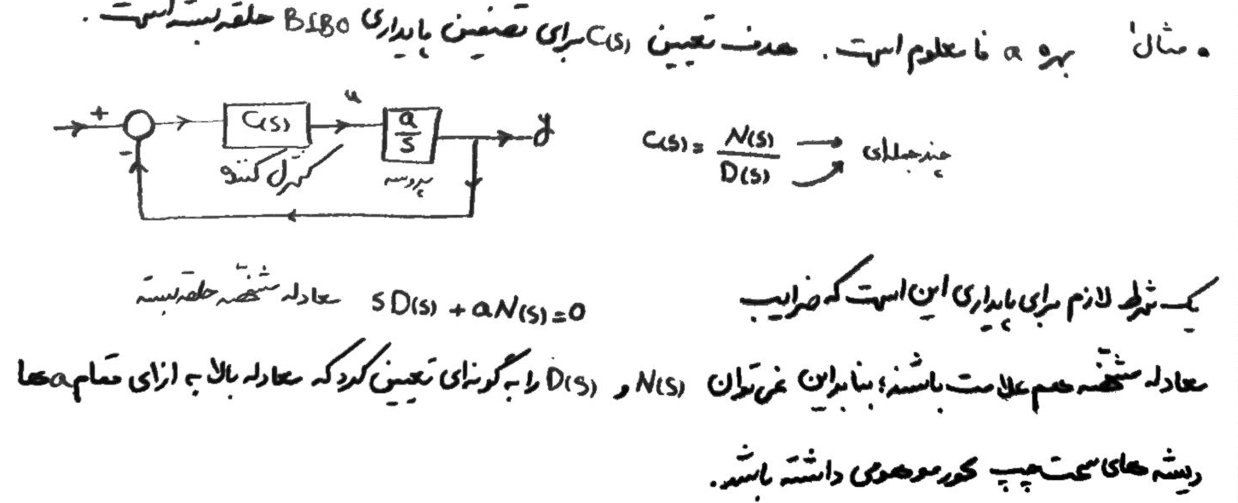 • مثال: بهره a نامعلوم است. هدف تعیین C(s) برای تضمین پایداری BIBO حلقه بسته است.
+ C(s) u a/s y
-
کنترل کننده پروسه
C(s) = N(s)/D(s) چندجمله‌ای
یک شرط لازم برای پایداری این است که ضرایب sD(s) + aN(s) = 0 معادله مشخصه حلقه بسته
معادله مشخصه هم علامت باشند؛ بنابراین نمی‌توان N(s) و D(s) را به گونه‌ای تعیین کرد که معادله بالا به ازای تمام a ها
ریشه های سمت چپ محور موهومی داشته باشد.